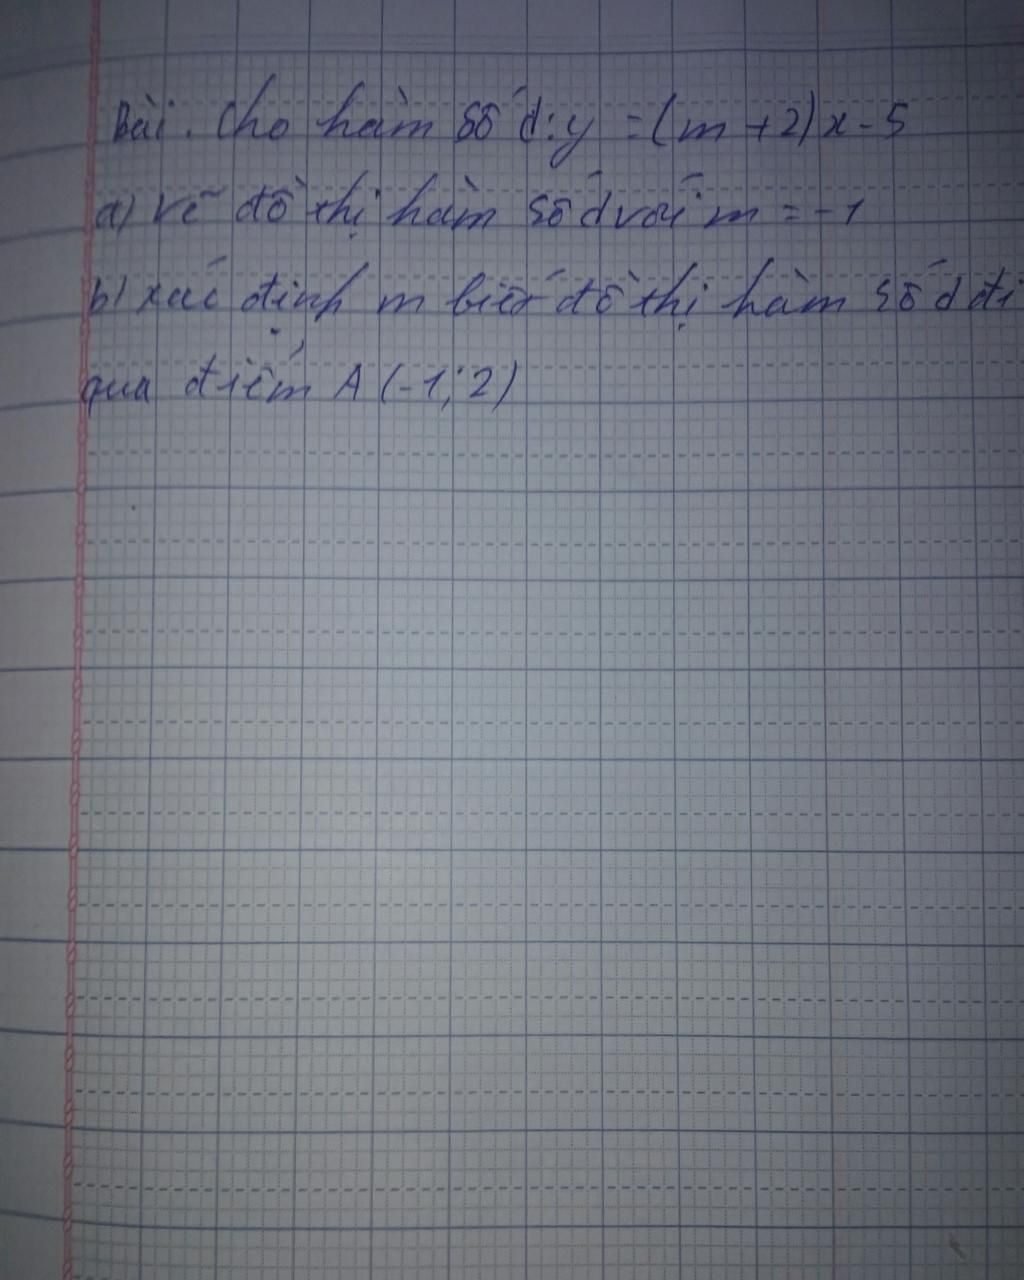 Bài. Cho hàm số d: y = (m + 2)x - 5
a) vẽ đồ thị hàm số d với m = -1
b) xác định m biết đồ thị hàm số d đi
qua điểm A (-1; 2)